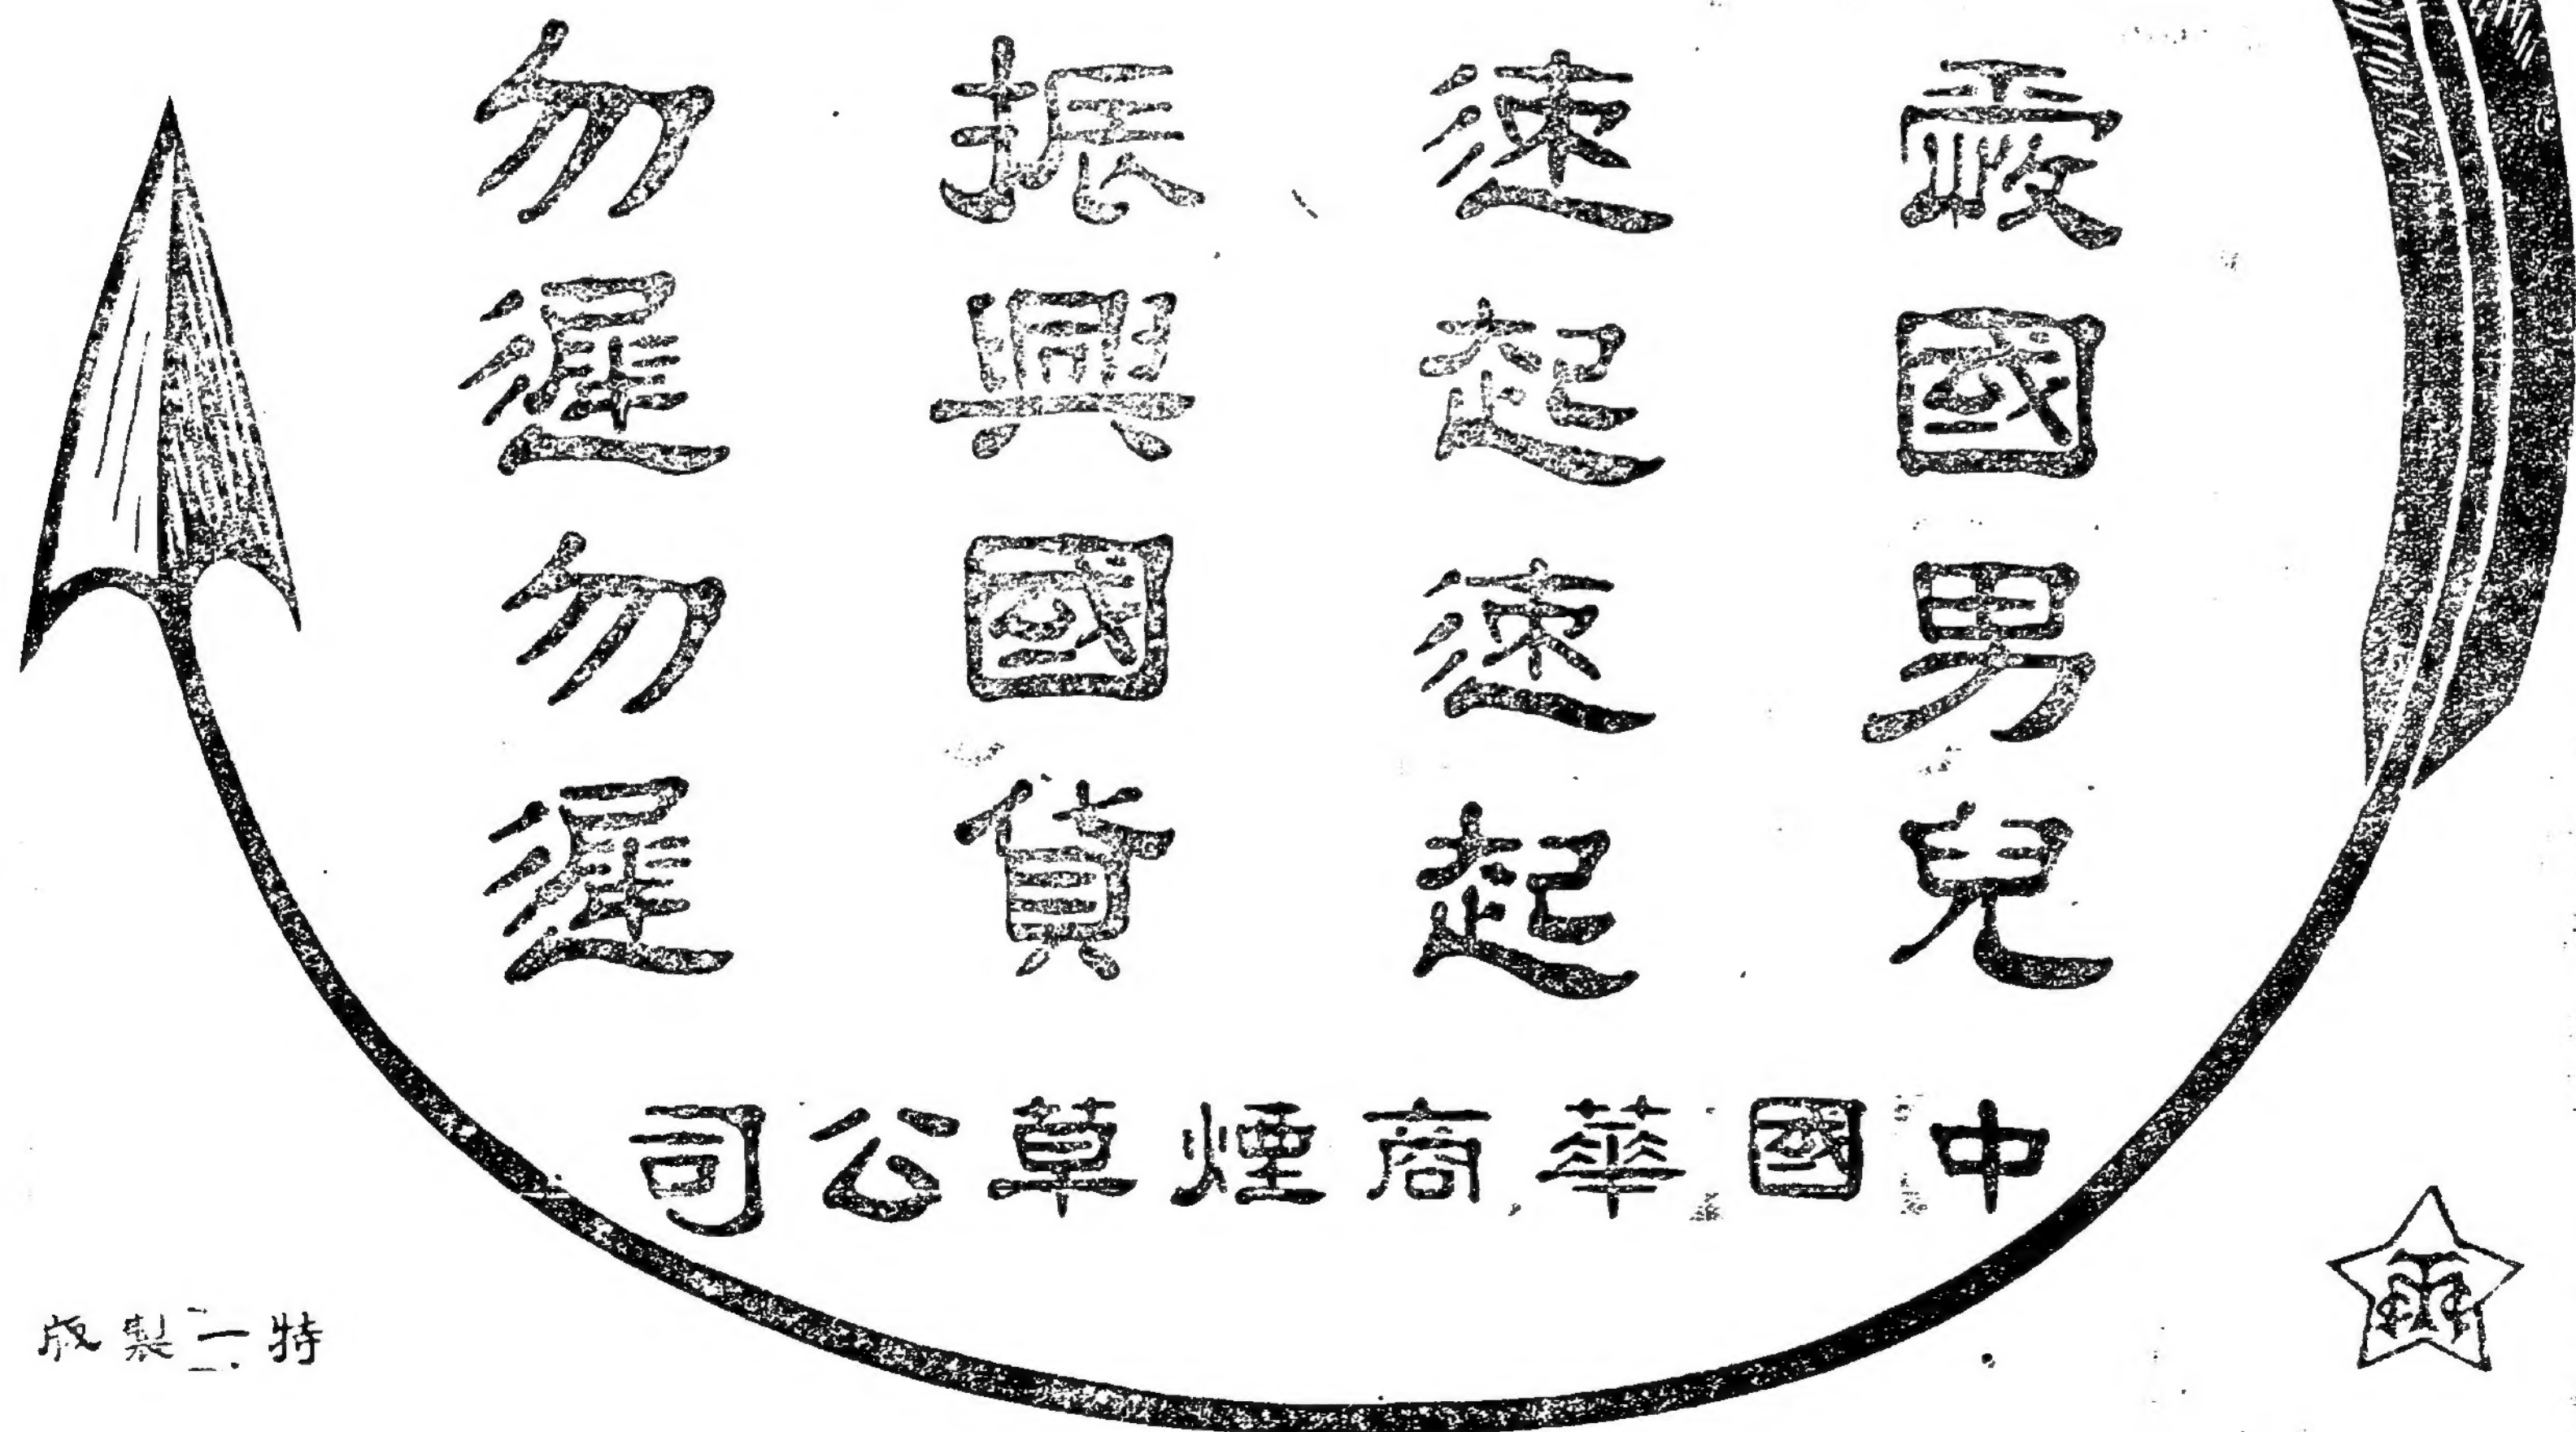 愛國男兒
速起速起
振興國貨
勿遲勿遲
中國華商煙草公司
特製版